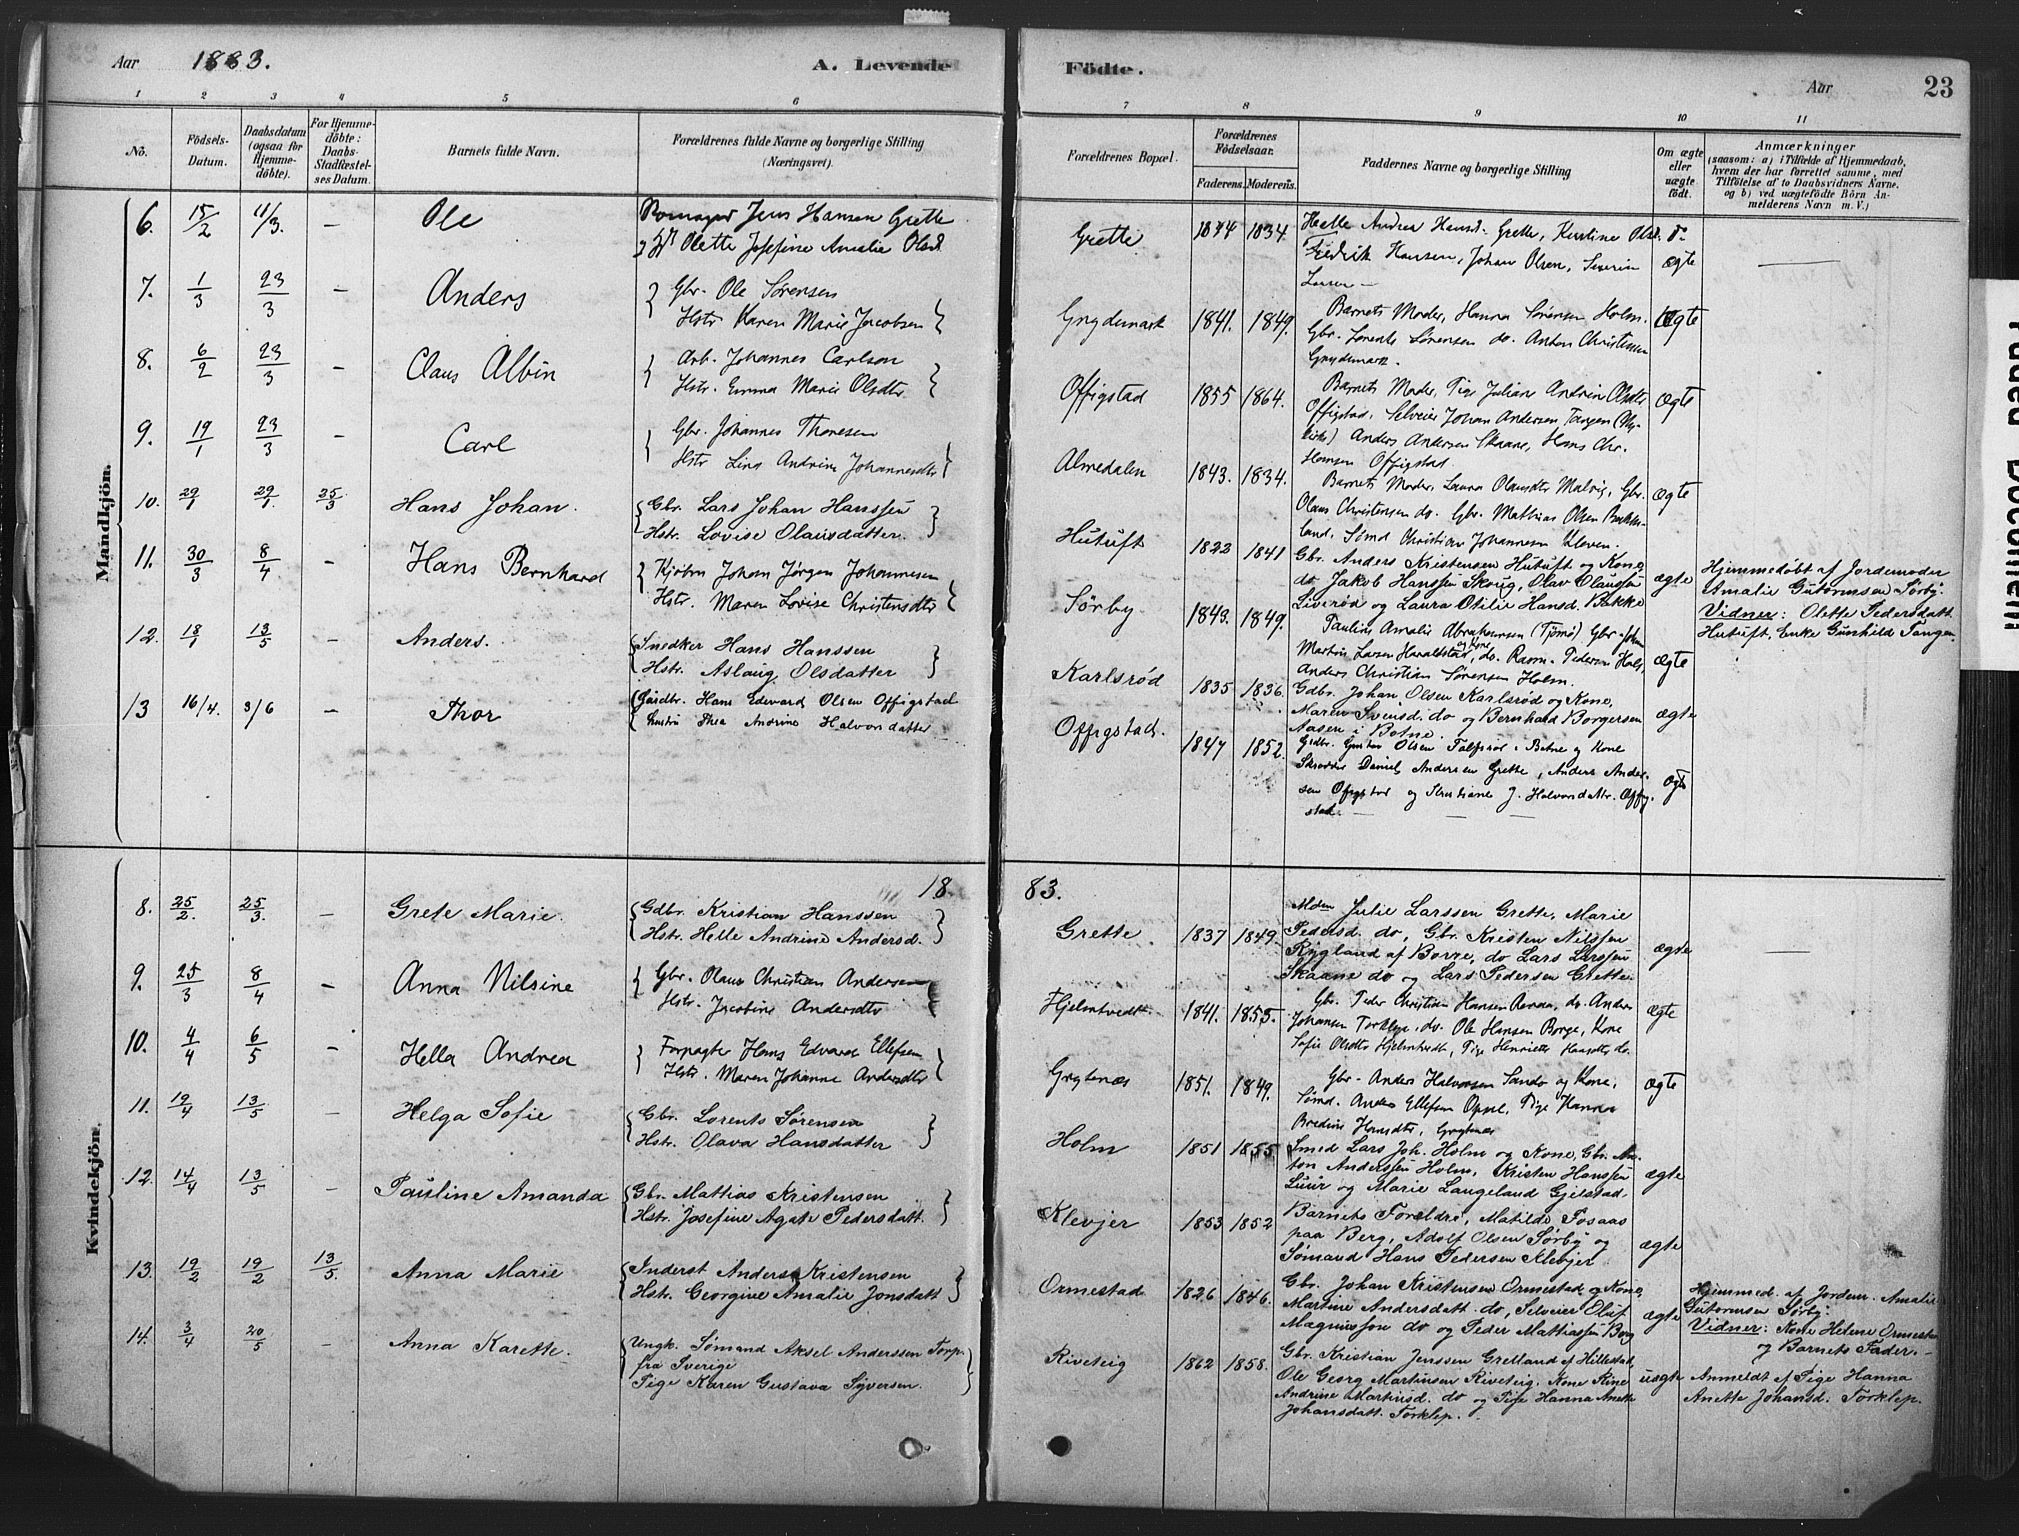 Aar 1883. A. Levende Födte. Aar 23
1 2 3 4 5 6 7 8 9 10 11
No.
Födsels-Datum.
Daabsdatum (ogsaa for Hjemme-döbte).
For Hjemme-döbte: Daabs-Stadfæstel-ses Datum.
Barnets fulde Navn.
Forældrenes fulde Navne og borgerlige Stilling (Næringsvei).
Forældrenes Bopæl.
Forældrenes Födselsaar.
Faderens. Moderens.
Faddernes Navne og borgerlige Stilling
Om ægte eller uægte födt.
Anmærkninger
(saasom: a) i Tilfælde af Hjemmedaab,
hvem der har forrettet samme, med
Tilföielse af to Daabsvidners Navne.
og b) ved uægtefödte Börn An-
melderens Navn m. V.)
Mandkjön.
6. 15/2 11/3. – Ole
Jens Hansen Grette
Olette Josefine Amalie Olsd.
Grette 1834
Helle Andrea Hansd. Grette, Olsd.
Fredrik Hansen, Johan Olsen, Severin
Larsen –
ægte
7. 1/3 23/3 – Anders
Gbr. Ole Sörensen
Hstr Karen Marie Jacobsen
Grydemark 1841. 1849.
Barnets Moder, Hanna Sörensen Holm.
Gbr. Lorents Sörensen do. Anton Christensen
Grydemark.
ægte
8. 6/2 23/3 – Claus Albin
Arb. Johannes Carlson
Hstr. Emma Marie Olsdtr
Offigstad 1855 1864.
Barnets Moder, Pige Juliane Andrin Olsdtr
Offigstad, Selveier Johan Andersen Tangen
Anders Andersen Skaane, Hans Chr.
Hansen Offigstad
ægte
9. 19/1 23/3 – Carl
Gbr. Johannes Thoresen
Hstr Lina Andrine Johannesdtr
Almedalen 1843. 1834.
Barnets Moder, Laura Olausdtr Malvig, Gbr.
Olaus Christensen do. Gbr. Mathias Olsen Bakke-
land, Sömd Christian Johannesen Kleven.
ægte
10. 29/1 29/1. 25/3 Hans Johan.
Gbr. Lars Johan Hanssen
Hstr. Lovise Olausdatter
Hutuft 1822 1841
Gbr. Anders Kristensen Hutuft og Kone,
do Jakob Hanssen Skoug, Olav Olaussen
Liverød og Laura Otilie Hansd. Bakke
ægte
Hjemmedøbt af Jordemoder
Amalie Gutormsen Sørby.
Vidner: Olette Pedersdatt.
Hutuft, Enke Gunhild Tangen
11. 30/3 8/4 – Hans Bernhard
Kjøbm Johan Jørgen Johannesen
Hstr. Maren Lovise Christensdtr
Sörby 1843. 1849.
Pauline Amalie Abrahamsen (Tjømø) Gbr. Johan
Martin Larsen Haraldstad og Kone, do. Rasm. Pedersen Hals,
Anders Christian Sørensen Holm.
ægte
12. 18/1 13/5 – Anders.
Snedker Hans Hanssen
Hstr. Aslaug Olsdatter
Karlsrød 1835 1836.
Gdbr. Johan Olsen Karlsrød og Kone,
Maren Svensd. do og Bernhard Borgersen
Aasen i Botne.
ægte
13 16/4. 3/6 – Thor
Gaardbr. Hans Edevard Olsen Offigstad
Hustru Thea Andrine Halvorsdatter
Offigstad. 1847 1852.
Grdbr. Gustav Olsen i Botne og Kone
Skrædder Daniel Andersen Grette, Anders Ander-
sen Offigstad og J. Halvorsdatr. Offig-
stad.
ægte
Kvindekjön.
18 83.
8. 25/2. 25/3. – Grete Marie.
Gdbr. Kristian Hanssen
Hstr. Helle Andrine Andersd.
Grette 1837 1849.
Mdm Julie Larssen Grette, Marie
Pedersd. do, Gbr. Kristen Nilssen
Rygland af Borre, do Lars Larssen
Skaane do og Lars Pedersen Grette.
ægte
9. 25/3 8/4 – Anna Nilsine
Gbr. Olaus Christian Andersen
Hstr. Jacobine Andersdtr
Hjelmtvedt. 1841. 1853.
Gbr. Peder Christian Hansen do. Anders
Johansen Torklep, do. Ole Hansen Borge, Kone
Sofie Olsdtr Hjelmtvedt, Pige Henriette Hansdtr do.
ægte
10. 4/4 6/5 – Hella Andrea
Forpagter Hans Edvard Ellefsen
Hstr. Maren Johanne Andersdtr
Grytenæs 1851. 1849.
Gbr. Anders Halvorsen Sando og Kone,
Sømd. Anders Ellefsen Oppe, Pige Hanna
Bredine Hansdtr, Grytenæs
ægte
11. 19/4 13/5 – Helga Sofie
Gbr. Lorents Sørensen
Hstr. Olava Hansdatter
Holm 1851 1855
Smed Lars Joh. Holm og Kone, Gbr. An-
ton Anderssen Holm, Kristen Hanssen
Luur og Marie Langeland Gjelstad.
ægte
12. 14/4 13/5 – Pauline Amanda
Gbr. Mattias Kristensen
Hstr. Josefine Agate Pedersdatt.
Klevjer 1853 1852
Barnets Forældre, Matilde Fosaas
paa Berg, Adolf Olsen Sørby og
Sømand Hans Pedersen Klevjer.
ægte
13. 19/2 19/2 13/5. Anna Marie
Inderst Anders Kristensen
Hstr. Georgine Amalie Jonsdatt
Ormestad 1826 1846.
Gbr. Johan Kristensen Ormestad og Kone,
Martine Andersdatt. do, Selveier Oluf
Magnussen do og Peder Mattiassen Berg
ægte
Hjemmed. af Jordem. Amalie
Gutormsen Sørby.
Vidner: Kone Helene Ormestad
og Barnets Fader. –
14. 3/4 20/5 – Anna Karette.
Ungk. Sømand Aksel Anderssen Torp.
fra Sverige
Pige Karen Gustava Syversen.
Riveteig 1862 1858.
Gbr. Kristian Jenssen Gretland af Hillestad,
Ole Georg Martinsen Riveteig. Kone Rine
Andrine Martinsd. do og Pige Hanna Anette
Johansdatt. Torklep.
uægte
Anmeldt af Pige Hanna
Anette Johansd. Torklep.